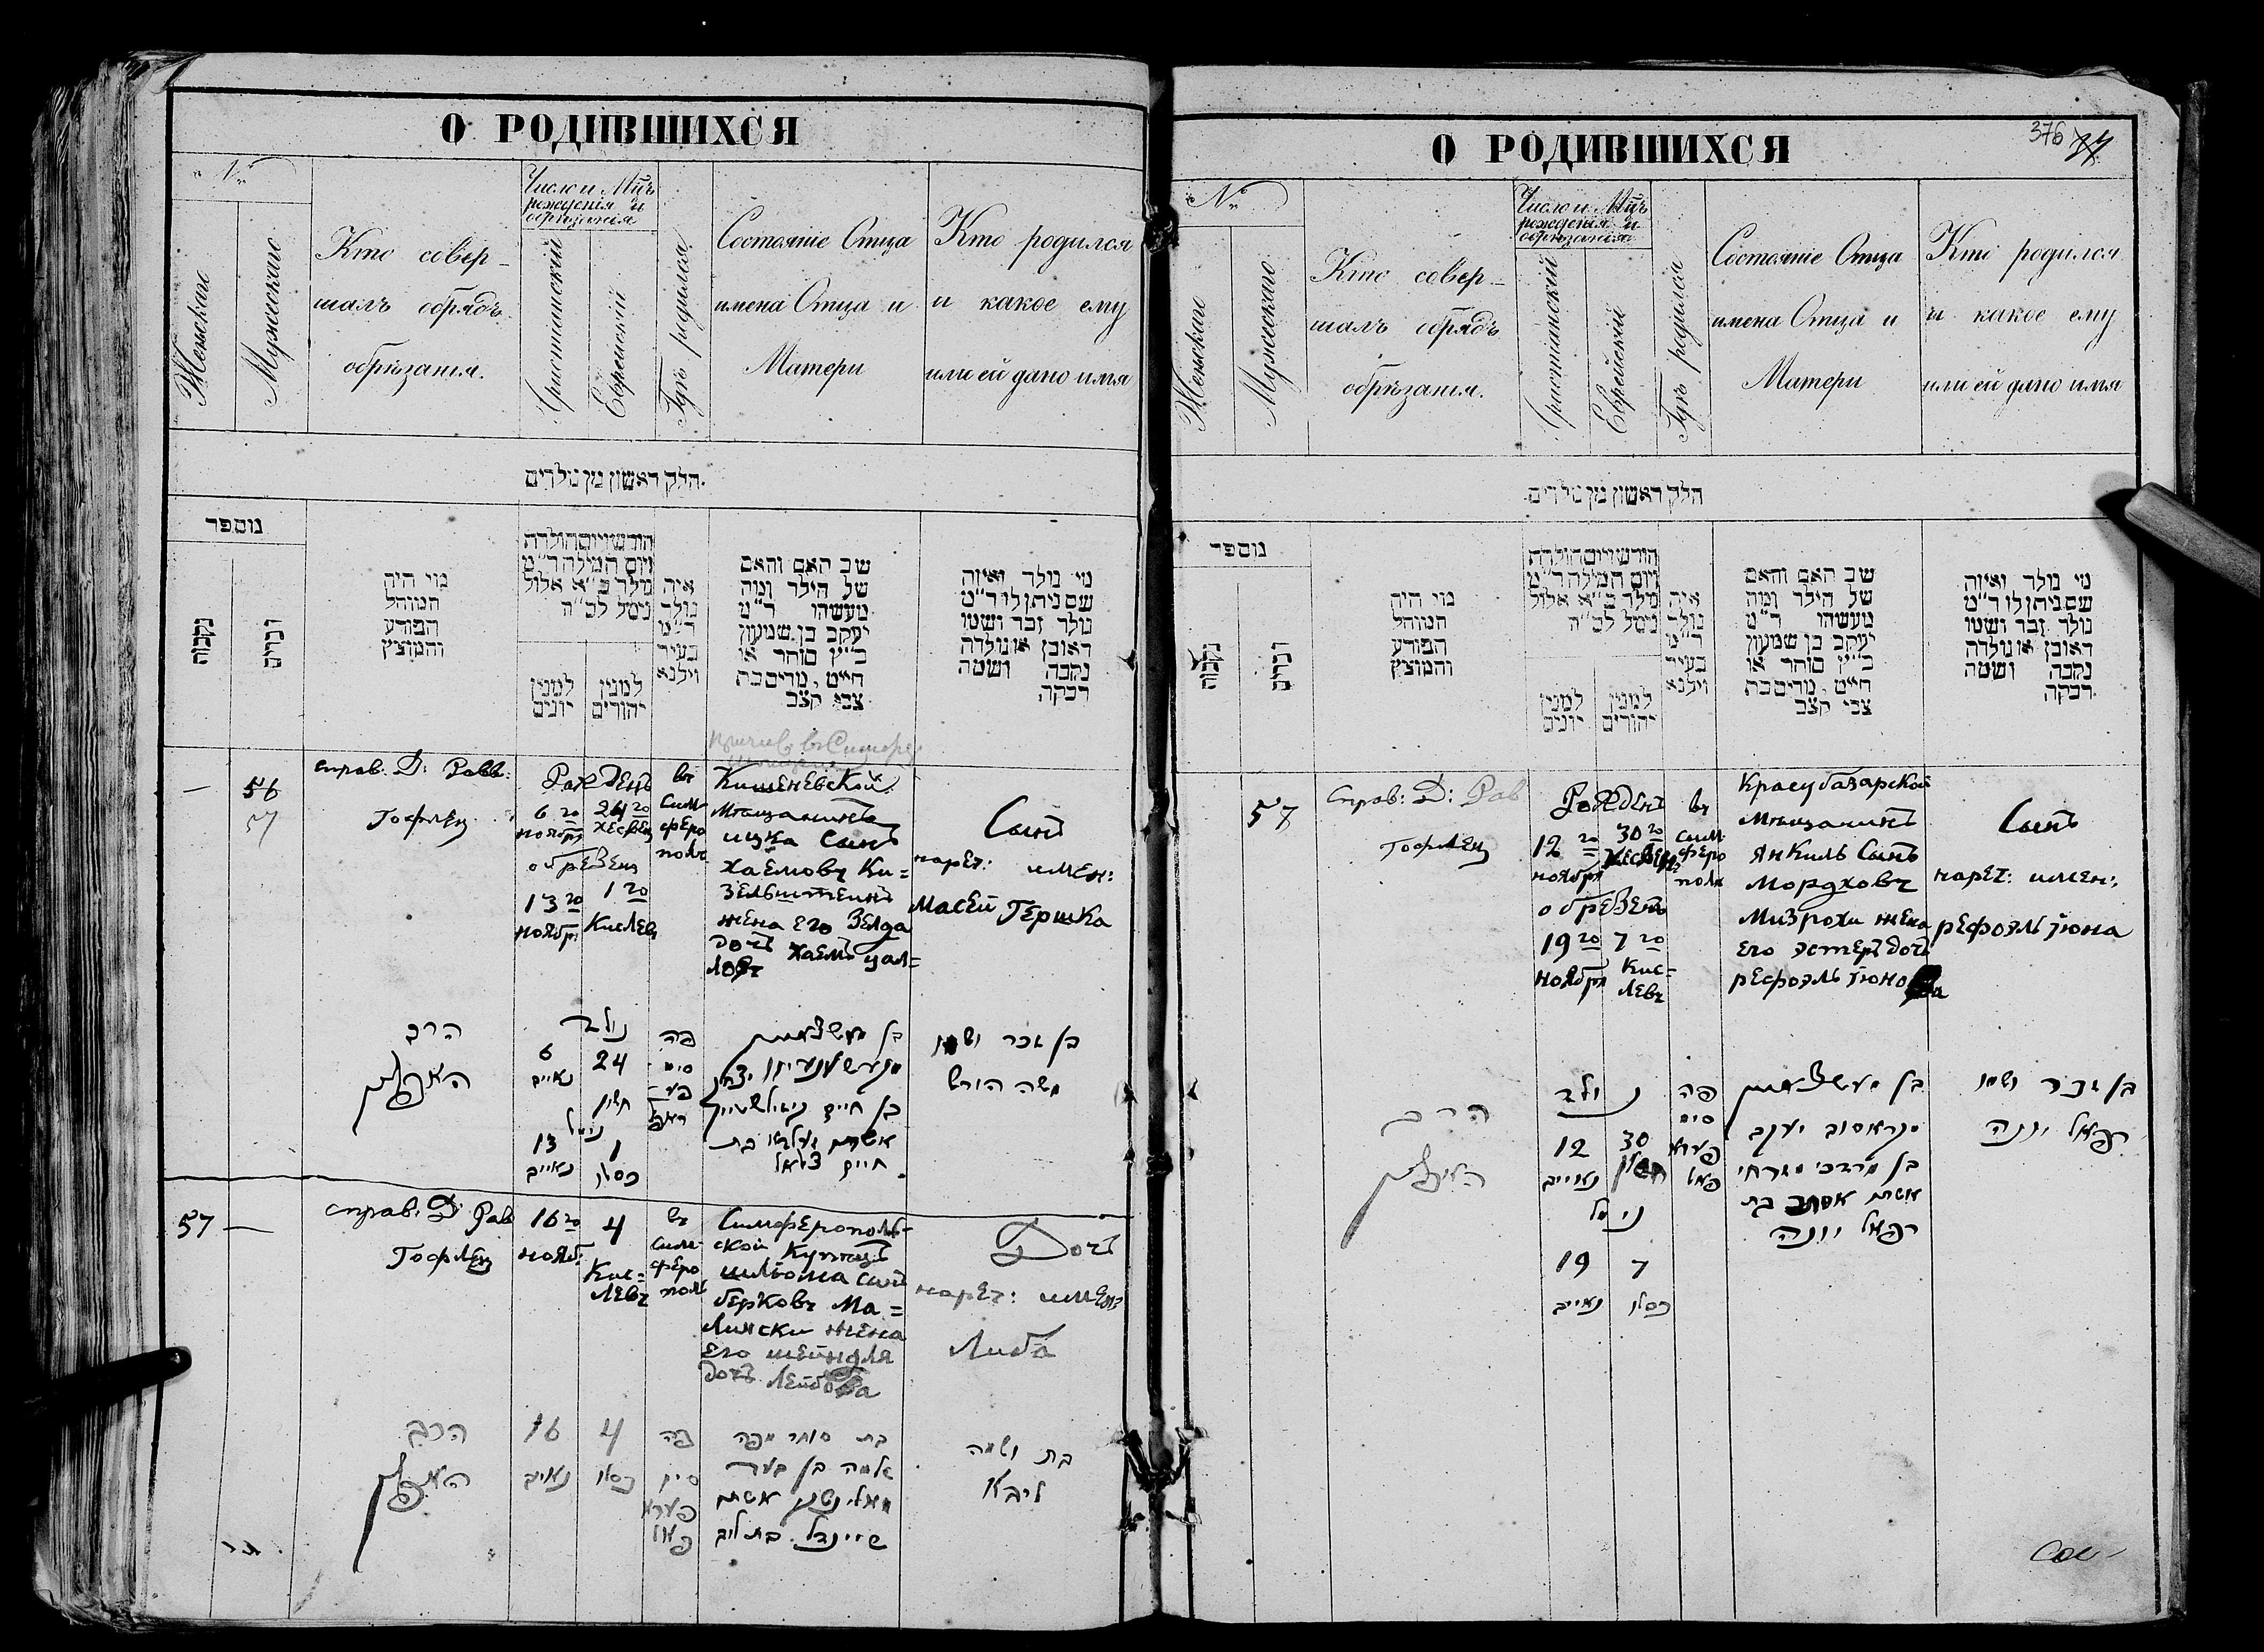 О РОДИВШИХСЯ
№
Женскаго
Мужескаго
Кто совер-
шалъ обрядъ
обрѣзанія.
Число и Мѣцъ
рожденія и
обрѣзанія
Христианскій
Еврейскій
Гдѣ родился
Состояніе Отца
имена Отца и
Матери
Кто родился
и какое ему
или ей дано имя
חלק ראשון מן נולדים
מספר
נקבות
זכרים
מי היה
המוהל
הפורע
והמוצץ
חודש ויום הולדת
ויום המילה ר״מ
נולד כ״א אלול
נימל לכ״ה
למנין
יונים
למנין
יהודים
איה
נולד
ר״מ
בעיר
ווילנא
שם האב והאם
של הילד ומה
מעשהו ר״מ
יעקב בן שמעון
כ״ץ סוחר או
חייט, מרים בת
צבי קצב
מי נולד ואיזה
שם ניתן לו ר״מ
נולד זכר ושמו
ראובן או נולדה
נקבה ושמה
רבקה
— 56
57
справ. Д: Равв:
Гофлец
Рожденъ
6 го 24 го
ноября Хесвец
обрезец
13 го 1 го
ноябрь Кислев
въ
Сим-
феро
полъ
Кишеневской
Мещанинъ
ицка Сынъ
Хаемовъ Ки=
зельштеинъ
жена его Зелда
дочъ Хаемъ цал=
Сынъ
нареч: имен:
Масей Гершка
הרב
נולד
6 24
חשון
נימל
13 1
כסלו
פה
סימ
בן
בן חיים
אשתו בת
חיים
בן זכר ושמו
משה הירש
57 —
справ: Д: Рав
Гофлец
16 го 4
нояб: Кис=
левъ
въ
Сим-
феро
полъ
Симферополь-
ской Купецъ
шльома сынъ
берковъ Ма=
лински жена
его шейндля
дочъ Лейбова
Дочъ
нареч: имен:
Либа
הרב
16 4
כסלו
פה
סימ
פערא
פאל
בת סוחר מפה
שלמה בן בער
מאלינסקי אשתו
שיינדל בת ליב
בת ושמה
ליבא
О РОДИВШИХСЯ
376
№
Женскаго
Мужескаго
Кто совер-
шалъ обрядъ
обрѣзанія.
Число и Мѣцъ
рожденія и
обрѣзанія
Христианскій
Еврейскій
Гдѣ родился
Состояніе Отца
имена Отца и
Матери
Кто родился
и какое ему
или ей дано имя
חלק ראשון מן נולדים
מספר
נקבות
זכרים
מי היה
המוהל
הפורע
והמוצץ
חודש ויום הולדת
ויום המילה ר״מ
נולד כ״א אלול
נימל לכ״ה
למנין
יונים
למנין
יהודים
איה
נולד
ר״מ
בעיר
ווילנא
שם האב והאם
של הילד ומה
מעשהו ר״מ
יעקב בן שמעון
כ״ץ סוחר או
חייט, מרים בת
צבי קצב
מי נולד ואיזה
שם ניתן לו ר״מ
נולד זכר ושמו
ראובן או נולדה
נקבה ושמה
רבקה
57
Справ: Д: Рав
Гофлец
Рожденъ
12 го 30 го
ноября Хесвец
обрезенъ
19 го 7 го
ноября Кис=
левъ
въ
Сим
феро
поли
Красубазарской
Мещанинъ
Янкиль Сынъ
Мордховъ
Мизрохи жена
его эстеръ дочъ
рефоэль Iюнова
Сынъ
нареч: имен:
рефоэль Iюна
הרב
נולד
12 30
חשון
נימל
19 7
כסלו
פה
סימ
פערא
פאל
בן
יעקב
בן מרדכי מזרחי
אשתו אסתר בת
רפאל יונה
בן זכר ושמו
רפאל יונה